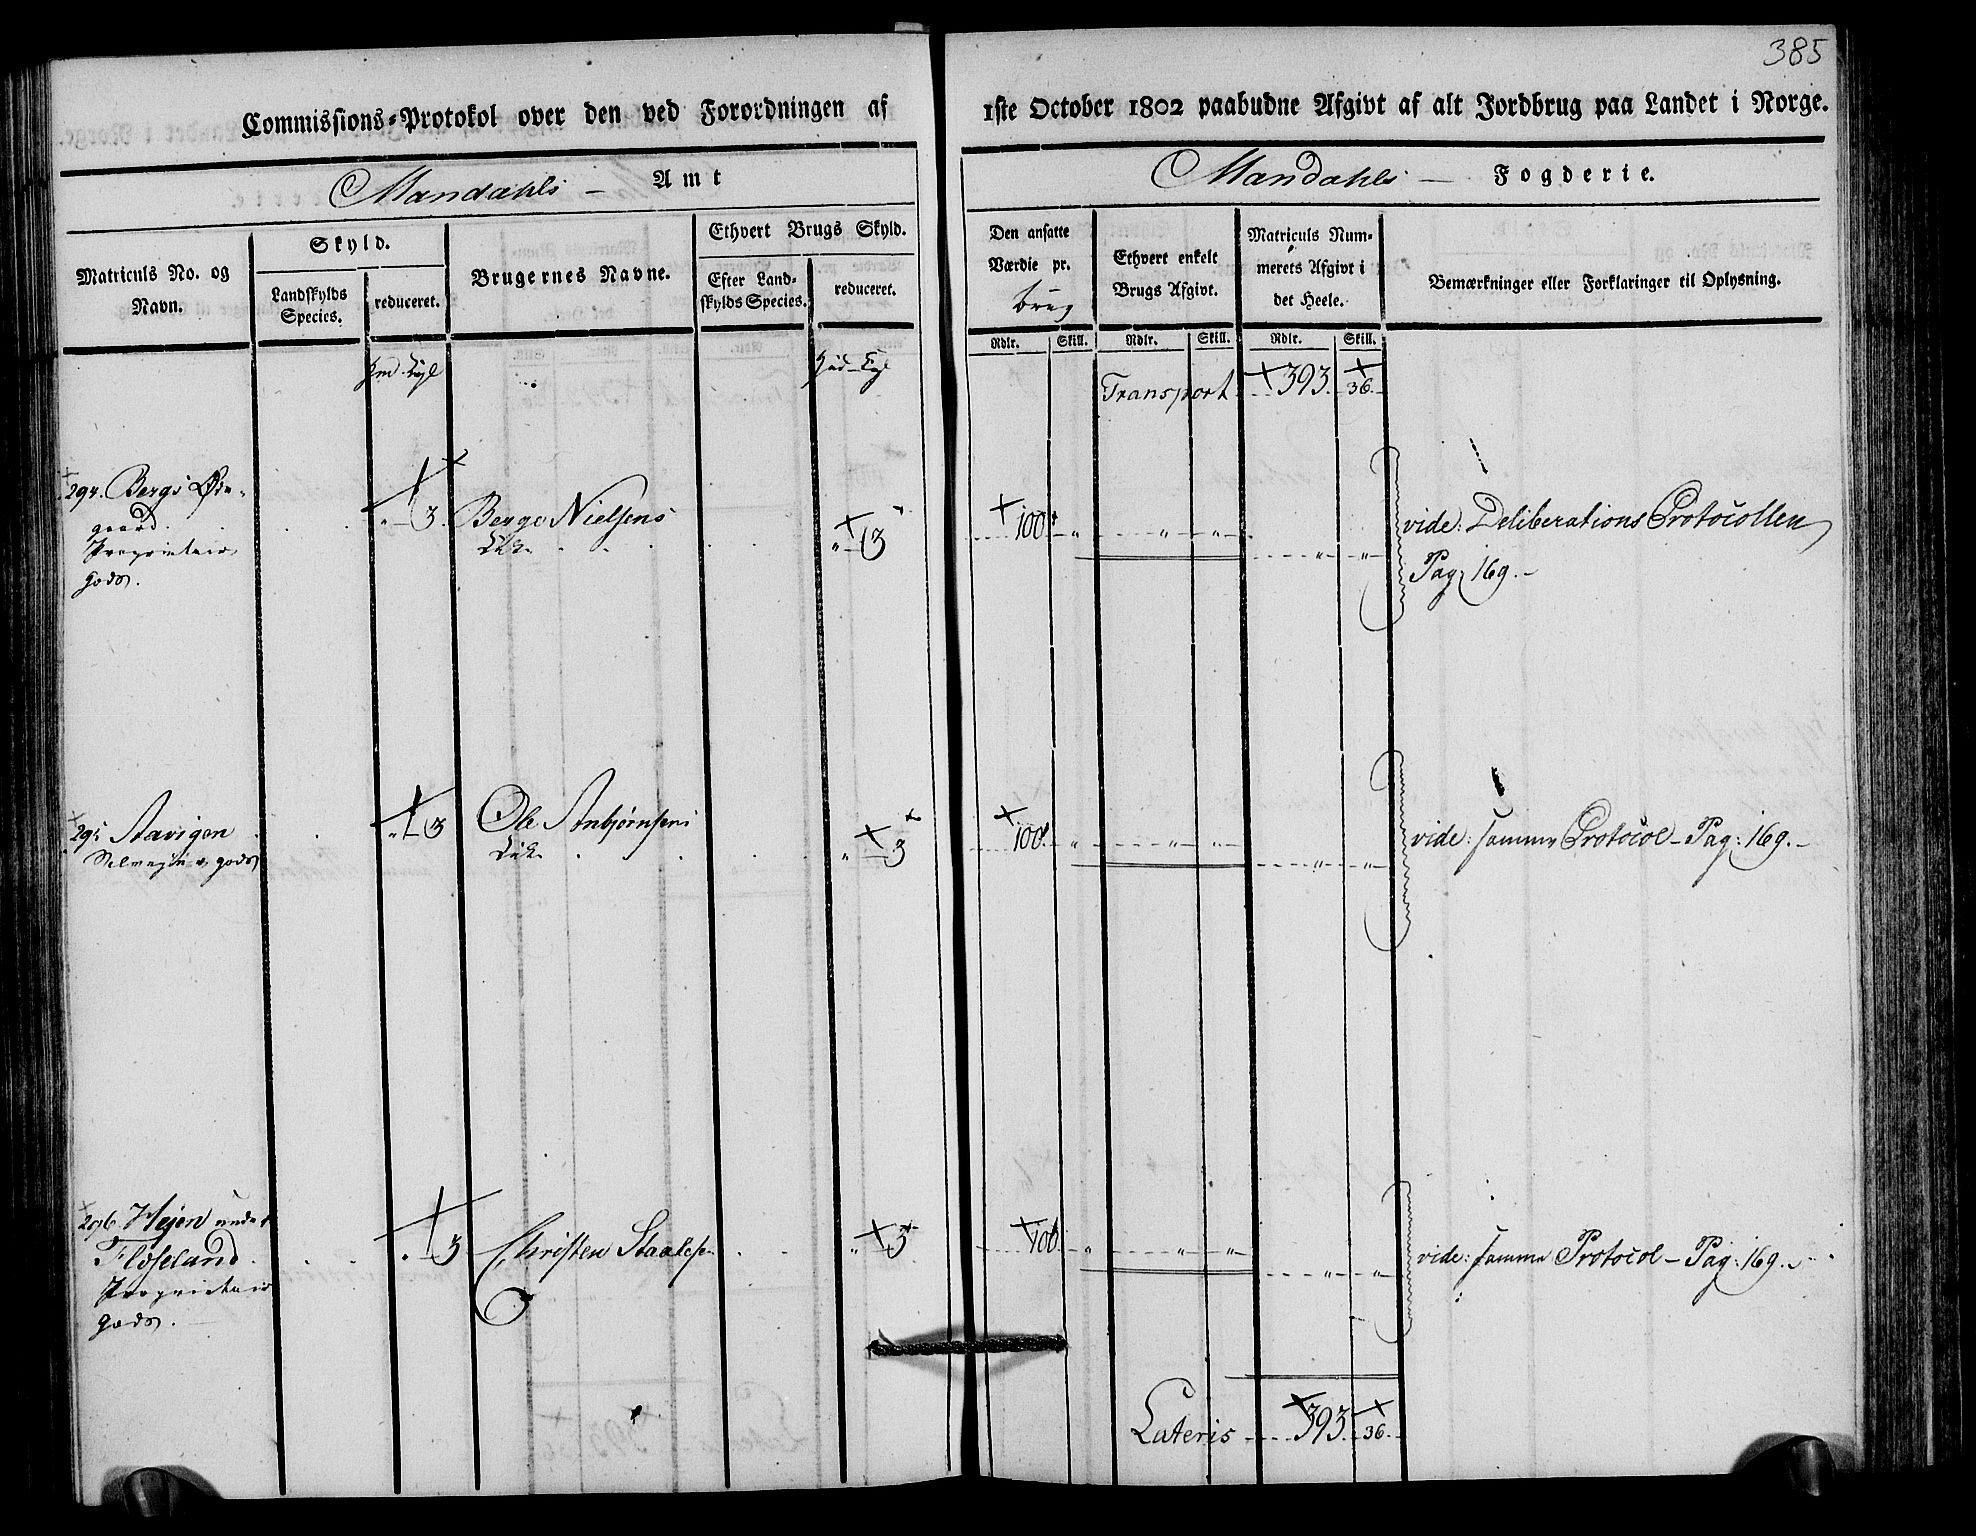 385
Commissions-Protokol over den ved Forordningen af 1ste October 1802 paabudne Afgivt af alt Jordbrug paa Landet i Norge.
Mandahls – Amt
Mandahls – Fogderie.
Matriculs No. og Navn.
Skyld.
Landskylds Species.
reduceret.
Brugernes Navne.
Ethvert Brugs Skyld.
Efter Landskylds Species.
reduceret.
Den ansatte Værdie pr. brug
Ethvert enkelt Brugs Afgivt.
Matriculs Nummerets Afgivt i det Heele.
Bemærkninger eller Forklaringer til Oplysning.
Rdlr. Skill. Rdlr. Skill. Rdlr. Skill.
Transport 393. 36.
294. Bergs Øde-
gaard.
Proprietair
gods.
" 3. Berge Nielsens " 3 100 " " " " "
vide: Deliberations Protocollen
Pag: 169. –
295 Aavigen " 3 Ole Anbjørnsens " 3 100. " " " " "
Selveyer gods
vide: samme Protocol – Pag: 169. –
296. Hejen under
Floseland.
Proprietair
gods.
" 3 Christen Staalesen " 3 100. " " " " "
vide: samme Protocol – Pag: 169. –
Lateris 393. 36.